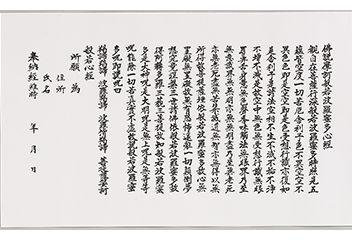 佛説摩訶般若波羅蜜多心経
観自在菩薩行深般若波羅蜜多時照見五
蘊皆空度一切苦厄舎利子色不異空空不
異色色即是空空即是色受想行識亦復如
是舎利子是諸法空相不生不滅不垢不浄
不増不減是故空中無色無受想行識無眼
耳鼻舌身意無色聲香味觸法無眼界乃至
無意識界無無明亦無無明盡乃至無老死
亦無老死盡無苦集滅道無智亦無得以無
所得故菩提薩埵依般若波羅蜜多故心無
罣礙無罣礙故無有恐怖遠離一切顛倒夢
想究竟涅槃三世諸佛依般若波羅蜜多故
得阿耨多羅三藐三菩提故知般若波羅蜜
多是大神呪是大明呪是無上呪是無等等
呪能除一切苦真實不虚故説般若波羅蜜
多呪即説呪曰
羯諦羯諦 波羅羯諦 波羅僧羯諦 菩提薩婆訶
般若心経
所願 為
住所
氏名
奉納経維時 年 月 日